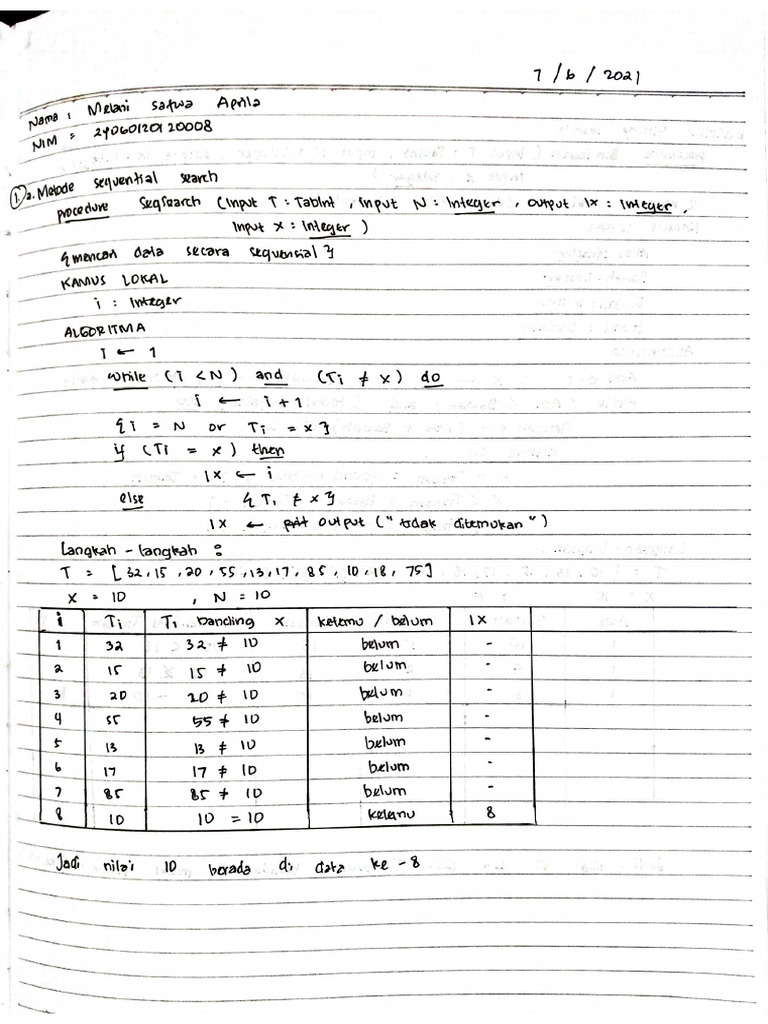 7 / 6 / 2021
Nama : Melani safwa Aprila
NIM : 24060120120008
1 a. Metode sequential search
procedure SeqSearch (input T : TabInt , input N : Integer , output IX : Integer ,
input X : Integer )
{ mencari data secara sequensial }
KAMUS LOKAL
i : Integer
ALGORITMA
i ← 1
while (i < N) and (Ti ≠ x) do
i ← i + 1
{ i = N or Ti = x }
if (Ti = x) then
IX ← i
else { Ti ≠ x }
IX ← output ("tidak ditemukan")
Langkah - langkah :
T = [ 32, 15, 20, 55, 13, 17, 85, 10, 18, 75 ]
X = 10 , N = 10
i Ti Ti banding X ketemu / belum IX
1 32 32 ≠ 10 belum -
2 15 15 ≠ 10 belum -
3 20 20 ≠ 10 belum -
4 55 55 ≠ 10 belum -
5 13 13 ≠ 10 belum -
6 17 17 ≠ 10 belum -
7 85 85 ≠ 10 belum -
8 10 10 = 10 ketemu 8
Jadi nilai 10 berada di data ke - 8